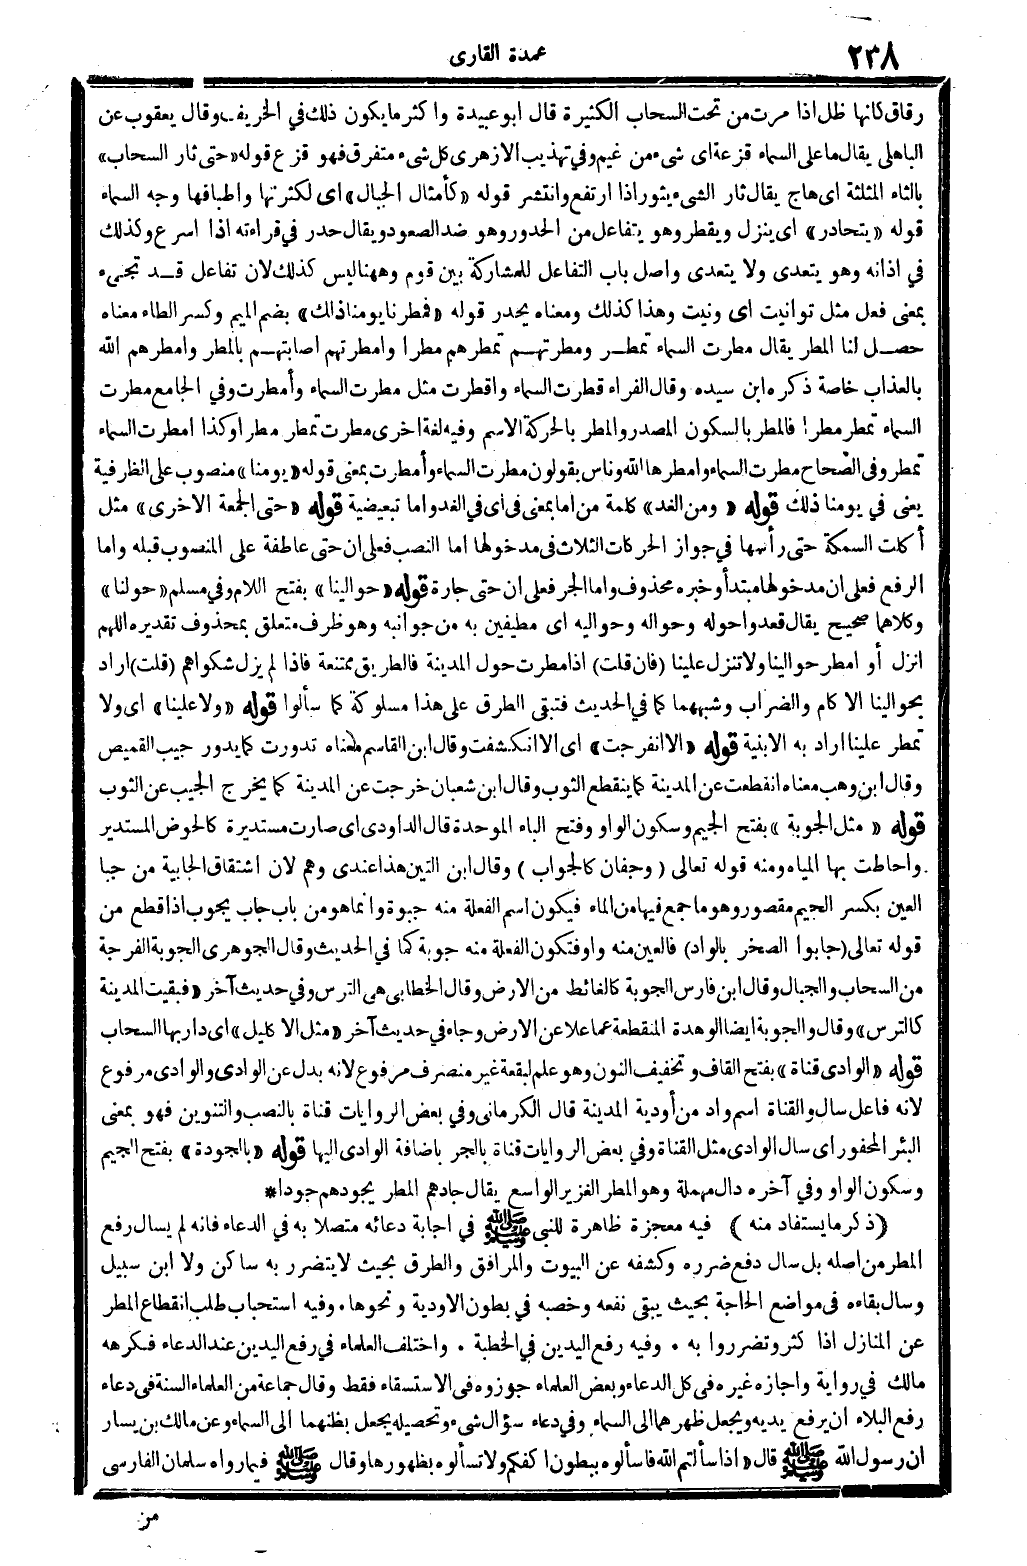 ٢٣٨
عمدة القارى
رقاق كانها ظل اذا مرت من تحت السحاب الكثيرة قال ابو عبيدة واكثر ما يكون ذلك في الخريف وقال يعقوب عن
الباهلى يقال ما على السماء قزعة اى شىء من غيم وفي تهذيب الازهرى كل شىء متفرق فهو قزع قوله «حتى ثار السحاب»
بالثاء المثلثة اى هاج يقال ثار الشىء يثور اذا ارتفع وانتشر قوله «كأمثال الجبال» اى لكثرتها واطباقها وجه السماء
قوله «يتحادر» اى ينزل ويقطر وهو يتفاعل من الحدور وهو ضد الصعود ويقال حدر في قراءته اذا اسرع وكذلك
في اذانه وهو يتعدى ولا يتعدى واصل باب التفاعل للمشاركة بين قوم وههنا ليس كذلك لان تفاعل قـد تجىء
بمعنى فعل مثل توانيت اى ونيت وهذا كذلك ومعناه يحدر قوله «فمطرنا يومنا ذاك» بضم الميم وكسر الطاء معناه
حصـل لنا المطر يقال مطرت السماء تمطـر ومطرتهـم تمطرهم مطرا وامطرتهم اصابتهـم بالمطر وامطرهم الله
بالعذاب خاصة ذكره ابن سيده وقال الفراء قطرت السماء واقطرت مثل مطرت السماء وأمطرت وفي الجامع مطرت
السماء تمطر مطرا فالمطر بالسكون المصدر والمطر بالحركة الاسم وفيه لغة اخرى مطرت تمطر مطرا وكذا امطرت السماء
تمطر وفى الصحاح مطرت السماء وامطرها الله وناس يقولون مطرت السماء وأمطرت بمعنى قوله «يومنا» منصوب على الظرفية
يعنى في يومنا ذلك قوله «ومن الغد» كلمة من اما بمعنى فى اى في الغد واما تبعيضية قوله «حتى الجمعة الاخرى» مثل
أكلت السمكة حتى رأسها في جواز الحركات الثلاث فى مدخولها اما النصب فعلى ان حتى عاطفة على المنصوب قبله واما
الرفع فعلى ان مدخولها مبتدأ وخبره محذوف واما الجر فعلى ان حتى جارة قوله «حوالينا» بفتح اللام وفي مسلم «حولنا»
وكلاهما صحيح يقال قعدوا حوله وحواله وحواليه اى مطيفين به من جوانبه وهو ظرف متعلق بمحذوف تقديره اللهم
انزل أو امطر حوالينا ولا تنزل علينا (فان قلت) اذا مطرت حول المدينة فالطريق ممتنعة فاذا لم يزل شكواهم (قلت) اراد
بحوالينا الاكام والضراب وشبههما كما في الحديث فتبقى الطرق على هذا مسلوكة كما سألوا قوله «ولا علينا» اى ولا
تمطر علينا اراد به الابنية قوله «الا انفرجت» اى الا انكشفت وقال ابن القاسم معناه تدورت كما يدور جيب القميص
وقال ابن وهب معناه انقطعت عن المدينة كما ينقطع الثوب وقال ابن شعبان خرجت عن المدينة كما يخرج الجيب عن الثوب
قوله «مثل الجوبة» بفتح الجيم وسكون الواو وفتح الباء الموحدة قال الداودى اى صارت مستديرة كالحوض المستدير
واحاطت بها المياه ومنه قوله تعالى (وجفان كالجواب) وقال ابن التين هذا عندى وهم لان اشتقاق الجابية من جبا
العين بكسر الجيم مقصور وهو ما جمع فيها من الماء فيكون اسم الفعلة منه جبوة وانما هو من باب جاب يجوب اذا قطع من
قوله تعالى (جابوا الصخر بالواد) فالعين منه واو فتكون الفعلة منه جوبة كما في الحديث وقال الجوهرى الجوبة الفرجة
من السحاب والجبال وقال ابن فارس الجوبة كالغائط من الارض وقال الخطابى هى الترس وفي حديث آخر «فبقيت المدينة
كالترس» وقال والجوبة ايضا الوهدة المنقطعة عما علا عن الارض وجاء في حديث آخر «مثل الاكليل» اى دار بها السحاب
قوله «الوادى قناة» بفتح القاف وتخفيف النون وهو علم لبقعة غير منصرف مرفوع لانه بدل عن الوادى والوادى مرفوع
لانه فاعل سال والقناة اسم واد من أودية المدينة قال الكرمانى وفي بعض الروايات قناة بالنصب والتنوين فهو بمعنى
البئر المحفور اى سال الوادى مثل القناة وفي بعض الروايات قناة بالجر باضافة الوادى اليها قوله «بالجودة» بفتح الجيم
وسكون الواو وفي آخره دال مهملة وهو المطر الغزير الواسع يقال جادهم المطر يجودهم جودا*
(ذكر ما يستفاد منه) فيه معجزة ظاهرة للنبى ﷺ في اجابة دعائه متصلا به في الدعاء فانه لم يسال رفع
المطر من اصله بل سال دفع ضرره وكشفه عن البيوت والمرافق والطرق بحيث لا يتضرر به ساكن ولا ابن سبيل
وسال بقاءه فى مواضع الحاجة بحيث يبقى نفعه وخصبه في بطون الاودية ونحوها. وفيه استحباب طلب انقطاع المطر
عن المنازل اذا كثر وتضرروا به . وفيه رفع اليدين في الخطبة . واختلف العلماء في رفع اليدين عند الدعاء فكرهه
مالك في رواية واجازه غيره فى كل الدعاء وبعض العلماء جوزوه فى الاستسقاء فقط وقال جماعة من العلماء السنة فى دعاء
رفع البلاء ان يرفع يديه ويجعل ظهرهما الى السماء وفي دعاء سؤال شىء وتحصيله يجعل بطنهما الى السماء وعن مالك بن يسار
ان رسول الله ﷺ قال «اذا سألتم الله فاسألوه ببطون اكفكم ولا تسألوه بظهورها وقال ﷺ فيما رواه سلمان الفارسى
من